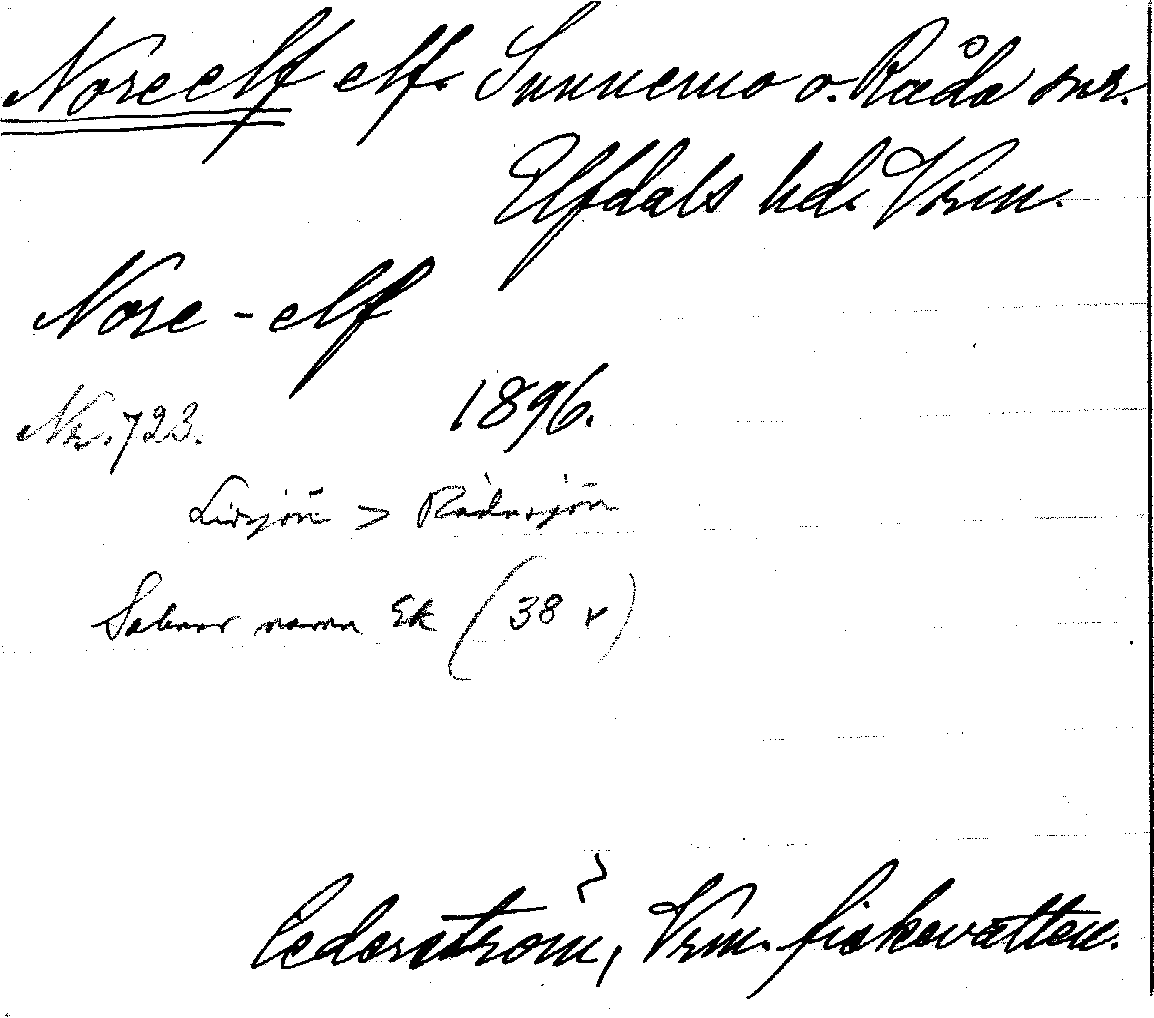 Noreelf elf. Sunnemo o. Råda snr.
Elfdals hd. Vrm.
Nore - elf
Nr. 723. 1896.
Lidsjön > Rådasjön
Saknar namn Ek (38 v)
Cederström, Vrm. fiskevatten.